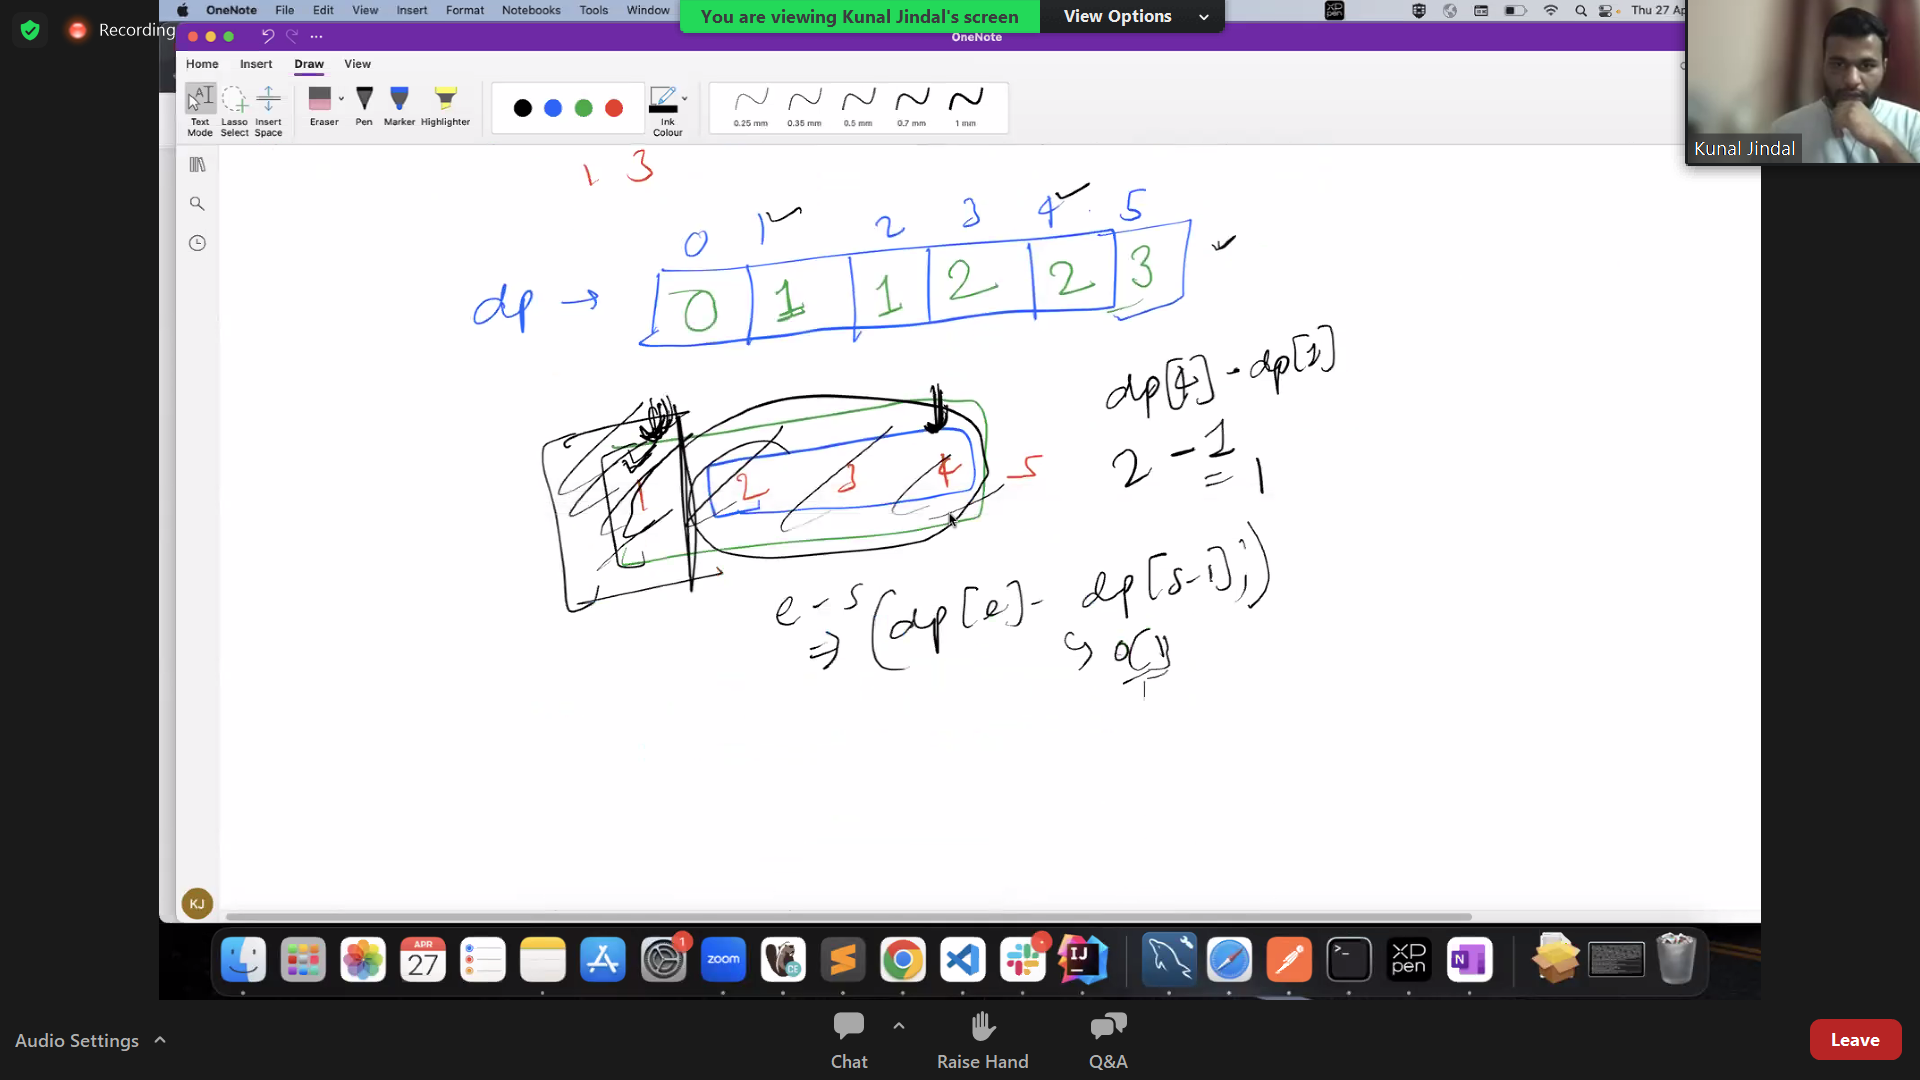 OneNote File Edit View Insert Format Notebooks Tools Window You are viewing Kunal Jindal's screen View Options Thu 27 Ap
Recording
OneNote
Home Insert Draw View
Text Mode Lasso Select Insert Space Eraser Pen Marker Highlighter Ink Colour 0.25 mm 0.35 mm 0.5 mm 0.7 mm 1 mm
Kunal Jindal
1 3
0 1 2 3 4 5
dp → 0 1 1 2 2 3
dp[4] - dp[1]
1 2 3 4 5
2 - 1
= 1
e - s
⇒ (dp[e] - dp[s-1];)
↳ O(1)
KJ
APR
27
1
zoom
CE
IJ
XP
pen
N
Audio Settings
Chat Raise Hand Q&A
Leave